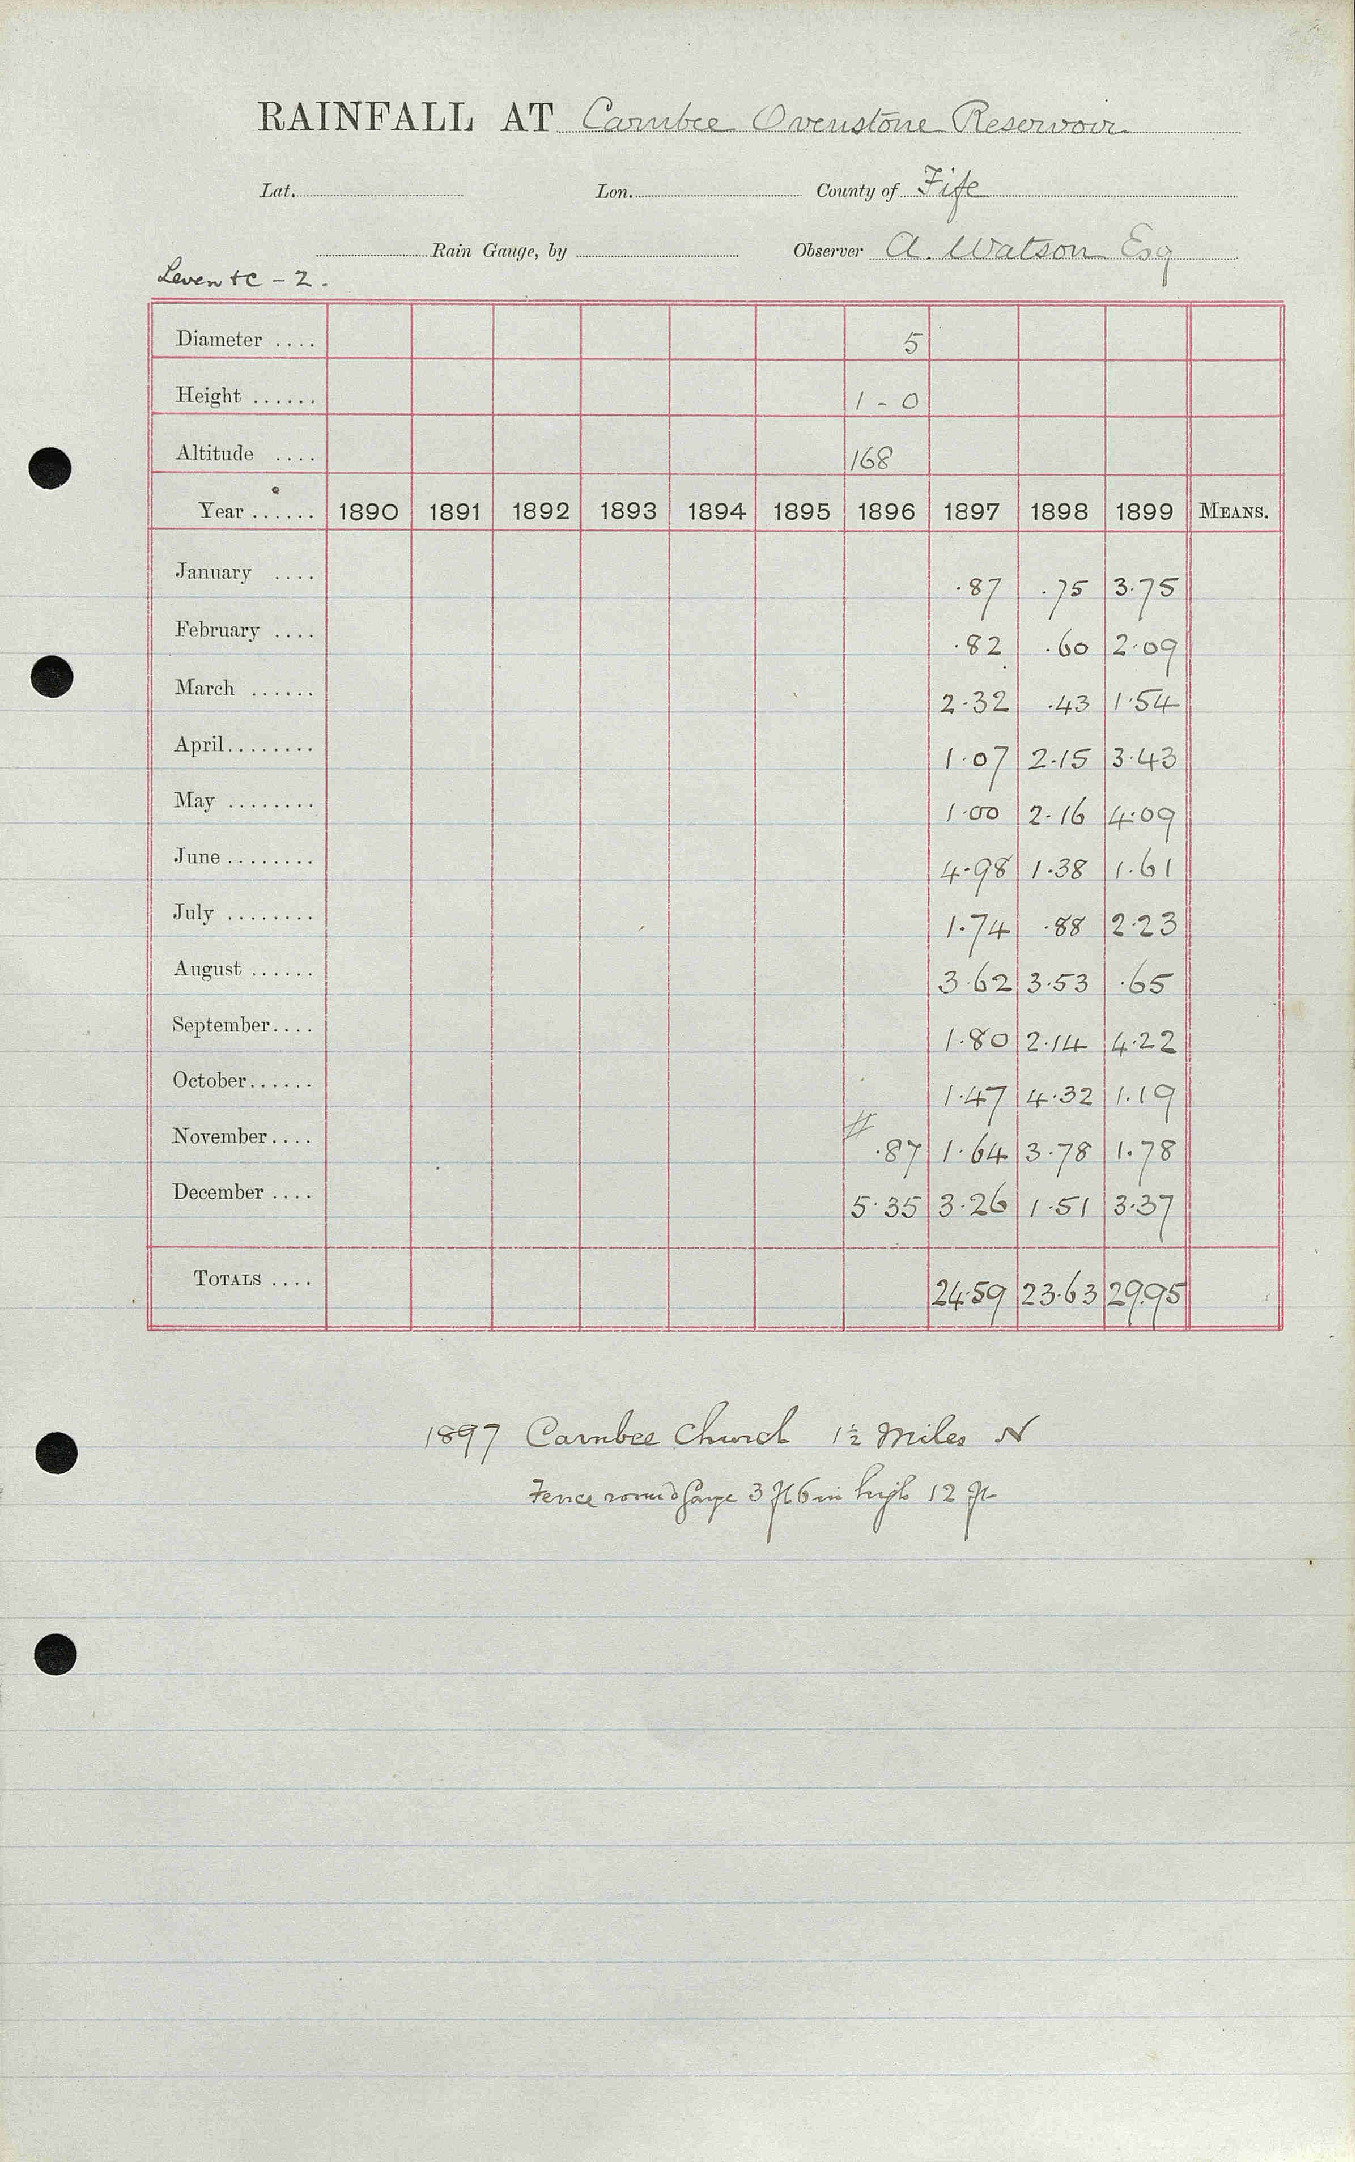 RAINFALL AT Carnbee Ovenstone Reservoir
Lat. Lon. County of Fife
Rain Gauge, by Observer A. Watson Esq
Leven &c - 2.
Diameter .... 5
Height ...... 1 - 0
Altitude .... 168
Year ...... 1890 1891 1892 1893 1894 1895 1896 1897 1898 1899 MEANS.
January .... .87 .75 3.75
February .... .82 .60 2.09
March ...... 2.32 .43 1.54
April ........ 1.07 2.15 3.43
May ........ 1.00 2.16 4.09
June ........ 4.98 1.38 1.61
July ........ 1.74 .88 2.23
August ...... 3.62 3.53 .65
September .... 1.80 2.14 4.22
October ...... 1.47 4.32 1.19
#
November .... .87 1.64 3.78 1.78
December .... 5.35 3.26 1.51 3.37
TOTALS .... 24.59 23.63 29.95
1897 Carnbee Church 1½ Miles N
Fence round Gauge 3 ft 6 in high 12 ft